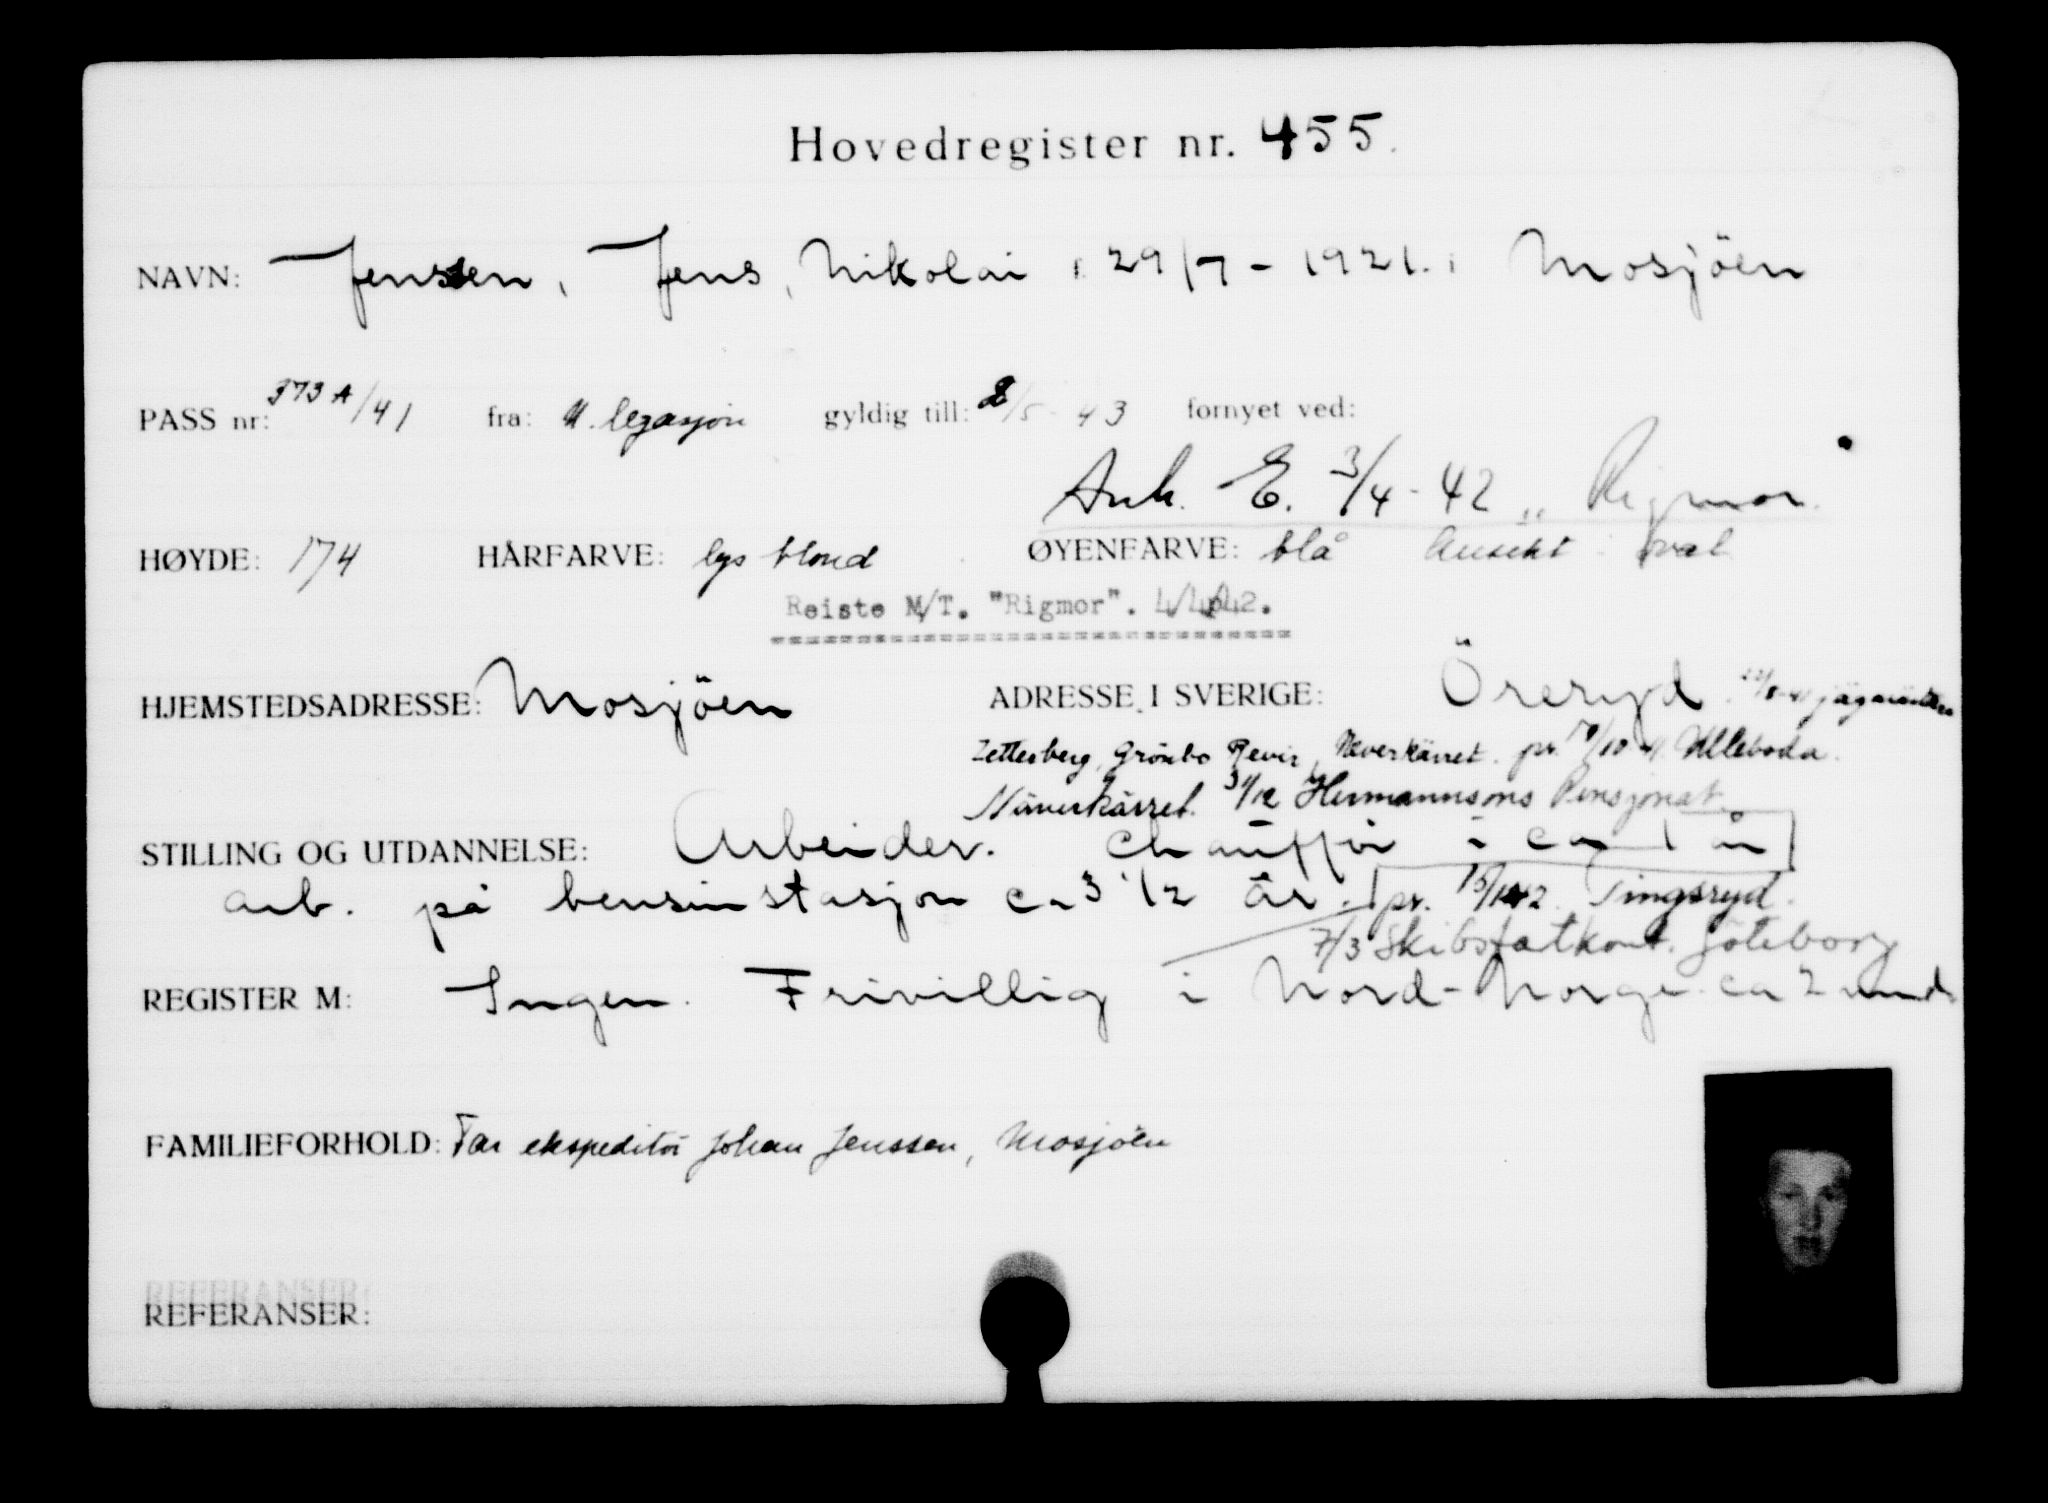 Hovedregister nr. 455.
NAVN: Jenssen, Jens, Nikolai, 29/7 - 1921. i Mosjöen
PASS nr: 373 A/41 fra: N. legasjon gyldig till: 8/5 - 43 fornyet ved:
Ank. E. 3/4 - 42 „ Rigmor.
HØYDE: 174 HÅRFARVE: lys blond ØYENFARVE: blå Ansikt : oval
Reiste M/T. "Rigmor". 4/4-42.
HJEMSTEDSADRESSE: Mosjöen ADRESSE I SVERIGE: Öreryd. 22/8-41 jägmästare
Zetterberg, Grönbo Revir, Näverkärret. pr. /10 41 Ulleboda.
Näverkärret. 31/12 Hermannsons Pensjonat
STILLING OG UTDANNELSE: Arbeider. Chauffør i ca 1 år
arb. på bensinstasjon ca 3 1/2 år. pr. 15/1 42. Tingsryd.
7/3 Skibsfartkont. Göteborg
REGISTER M: Ingen. Frivillig i Nord-Norge ca 2 mnd.
FAMILIEFORHOLD: Far ekspeditør Johan Jenssen, Mosjöen
REFERANSER: